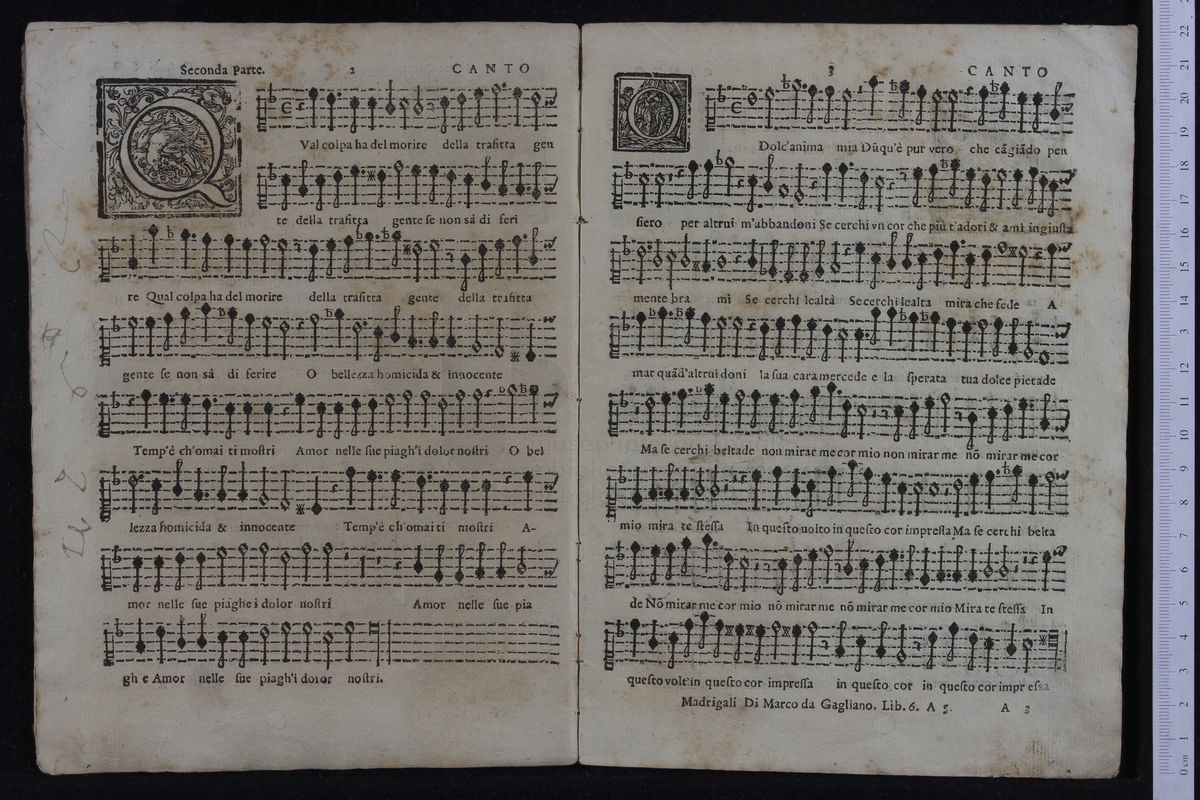 Seconda Parte. 2 CANTO
QVal colpa ha del morire della trafitta gen
te della trafitta gente se non sà di feri
re Qual colpa ha del morire della trafitta gente della trafitta
gente se non sà di ferire O bellezza homicida & innocente
Temp'è ch'omai ti mostri Amor nelle sue piagh'i dolor nostri O bel
lezza homicida & innocente Temp'è ch'omai ti mostri A-
mor nelle sue piaghe i dolor nostri. Amor nelle sue pia
gh e Amor nelle sue piagh'i dolor nostri.
3 CANTO
O Dolc'anima mia Dūqu'è pur vero che cāgiādo pen
siero per altrui m'abbandoni Se cerchi vn cor che più t'adori & ami ingiusta
mente bra mi Se cerchi lealtà Se cerchi lealta mira che fede A
mar quād'altrui doni la sua cara mercede e la sperata tua dolce pietade
Ma se cerchi beltade non mirar me cor mio non mirar me nō mirar me cor
mio mira te stessa In questo uolto in questo cor impressa Ma se cerchi belta
de Nō mirar me cor mio nō mirar me nō mirar me cor mio Mira te stessa In
questo volt'in questo cor impressa in questo cor in questo cor impr essa
Madrigali Di Marco da Gagliano. Lib. 6. A 5. A 3